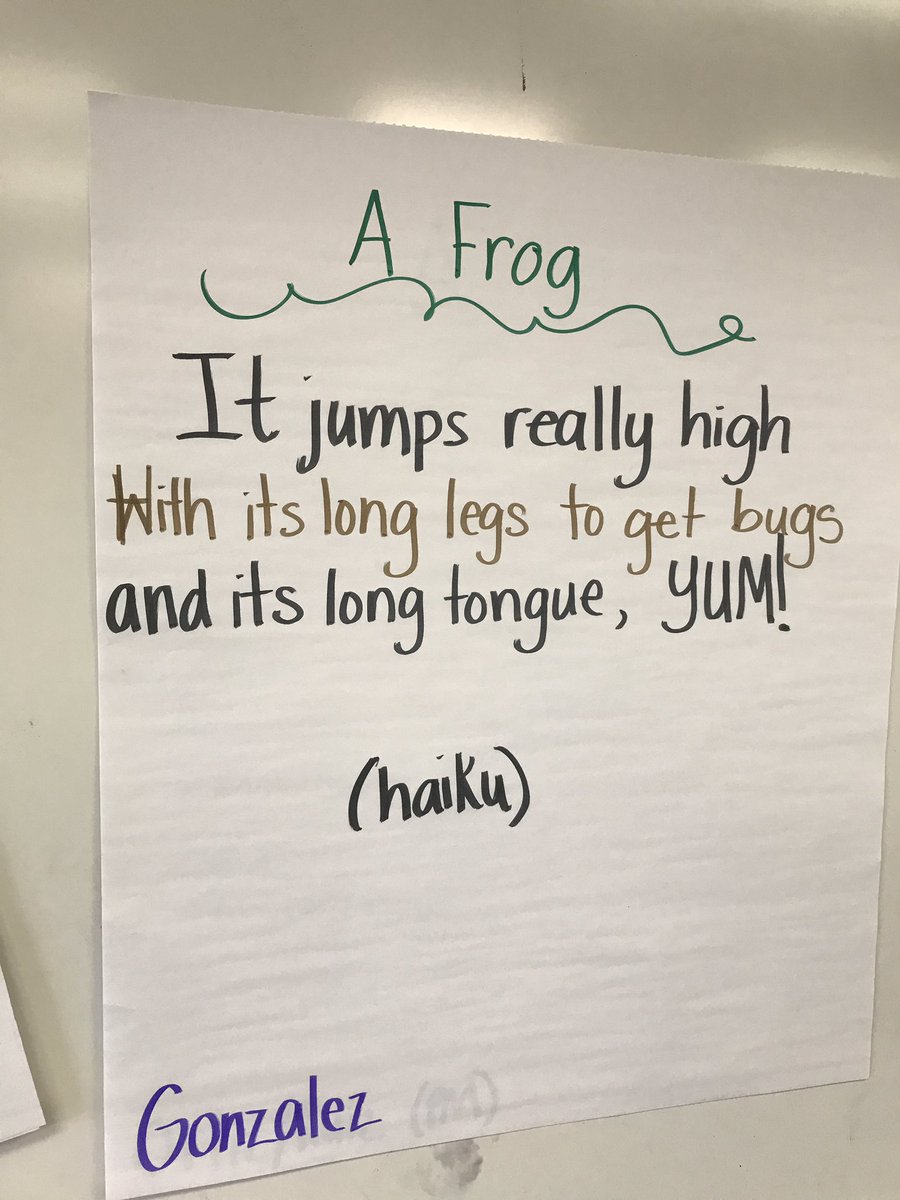 A Frog
It jumps really high
With its long legs to get bugs
and its long tongue, YUM!
(haiku)
Gonzalez